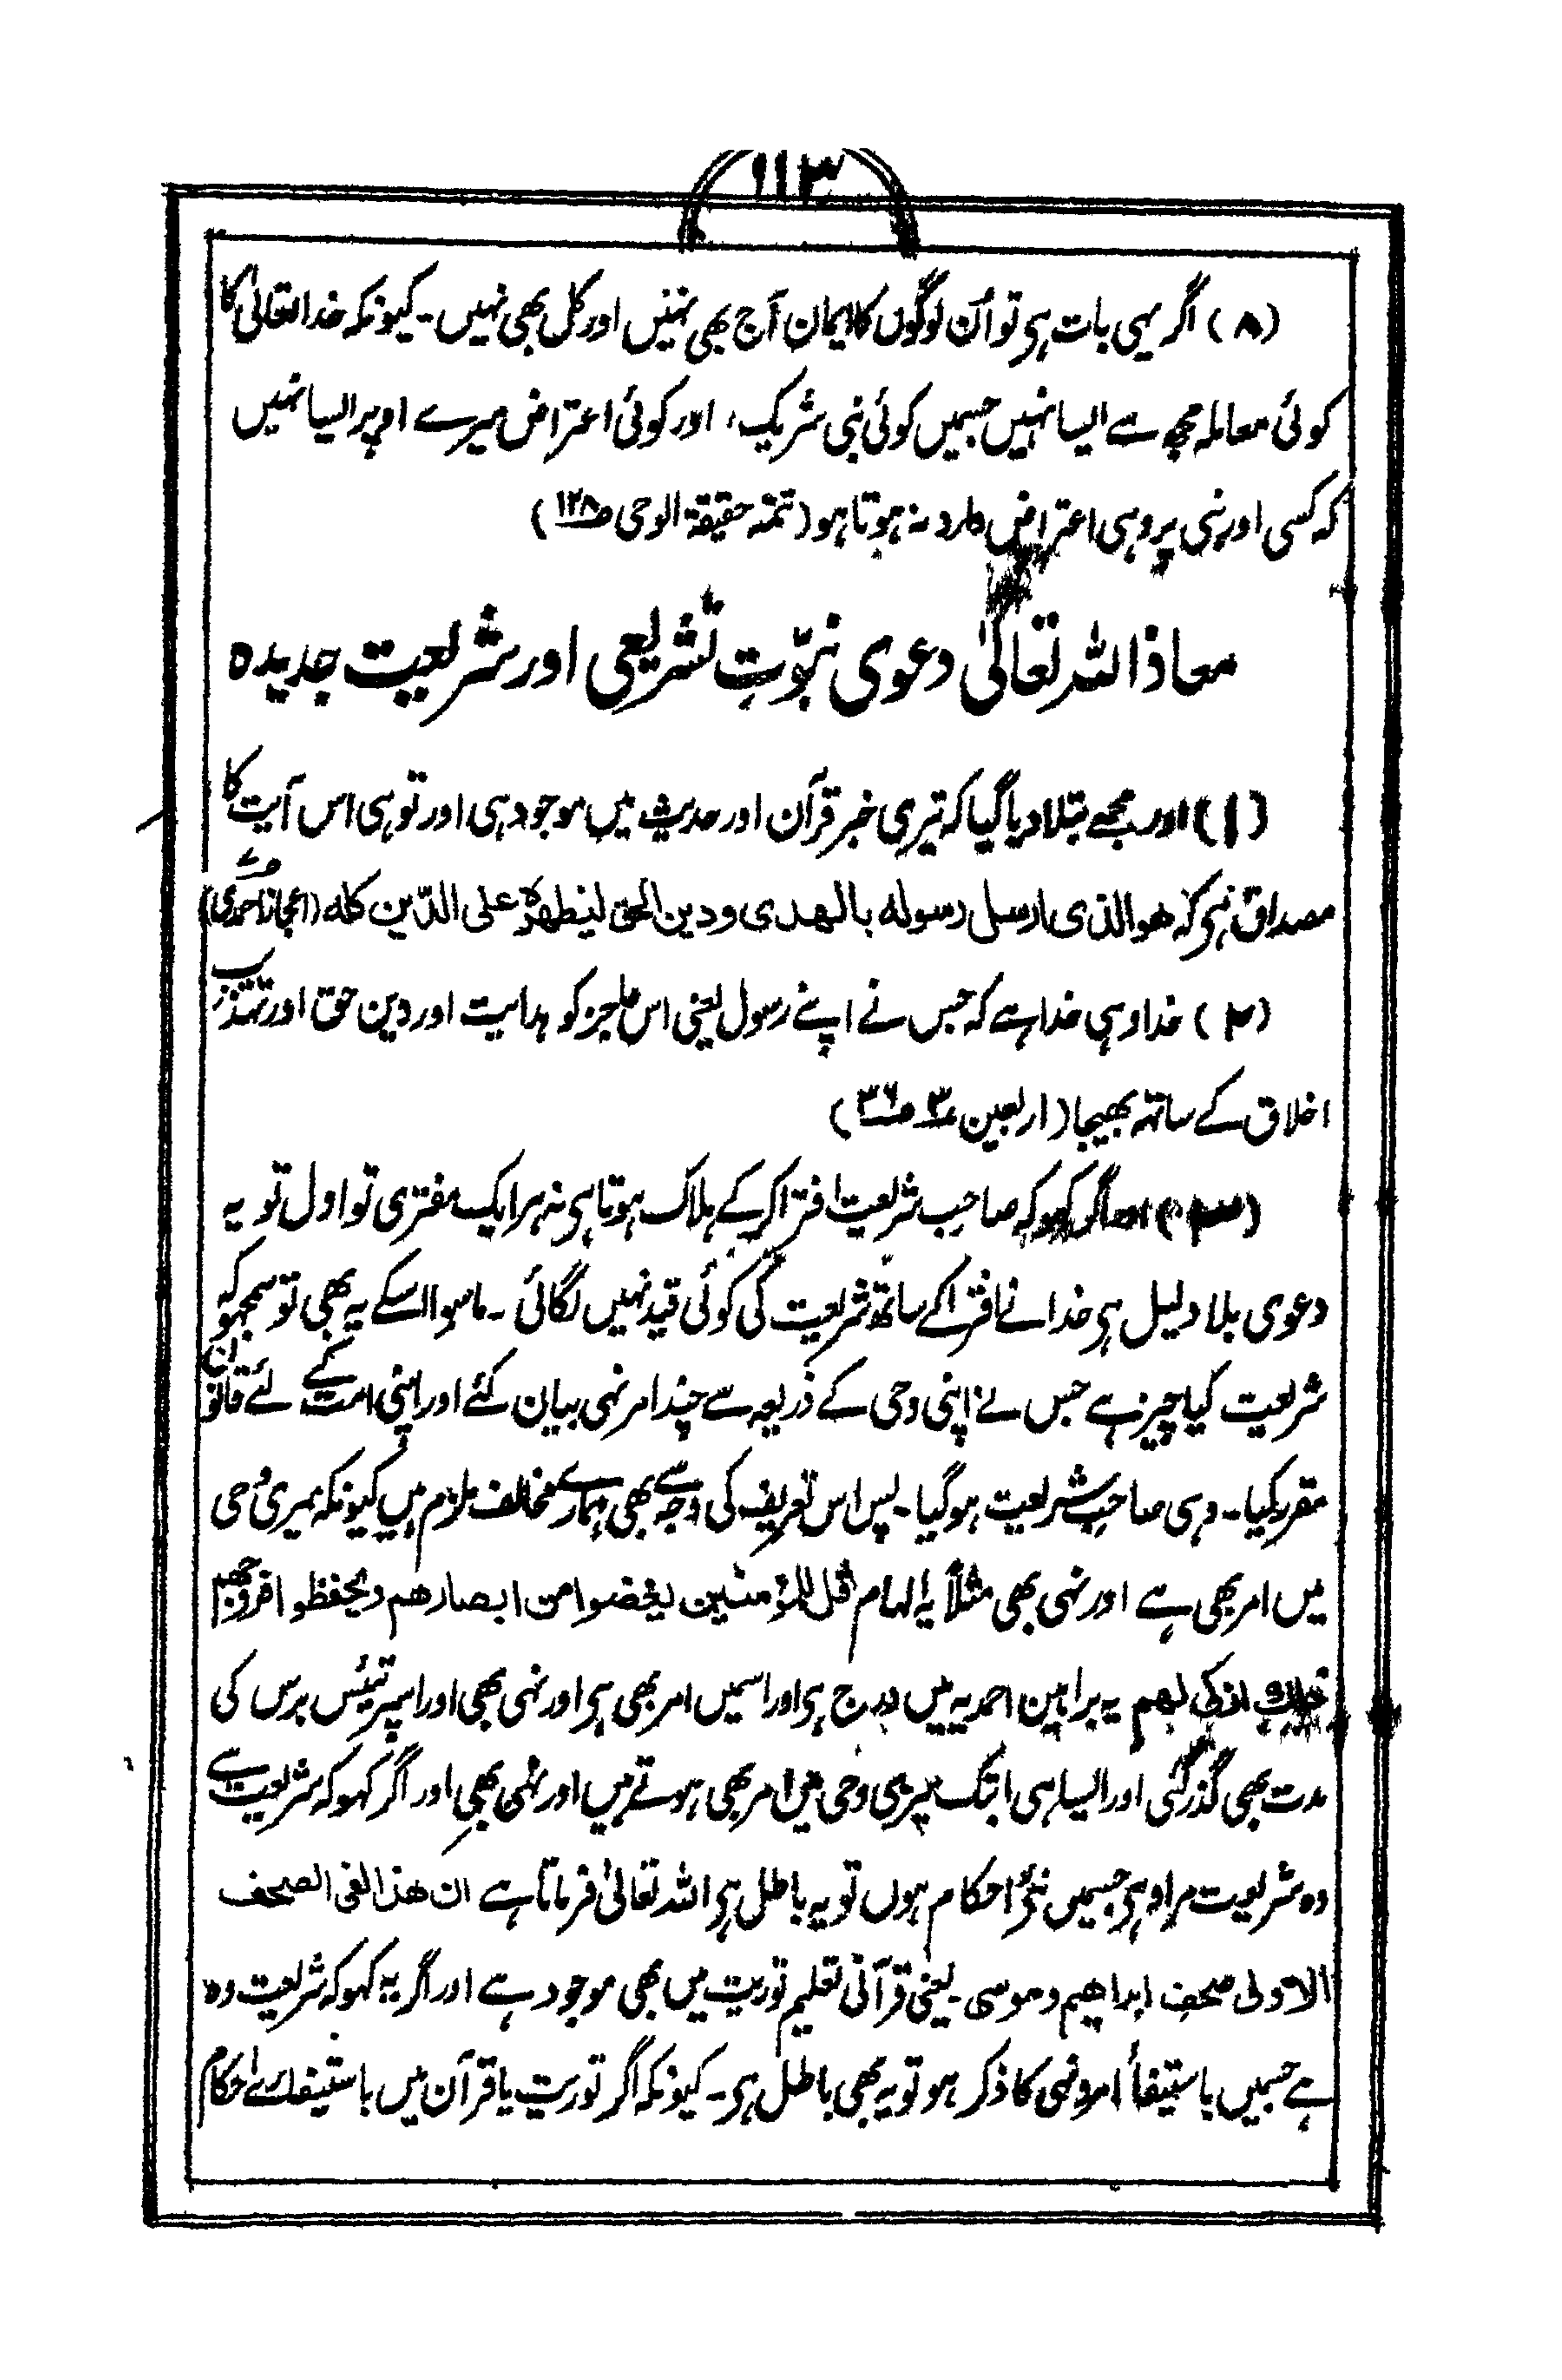 ۱۱۳
(۸) اگر یہی بات ہی تو اُن لوگوں کا ایمان آج بھی نہیں اور کل بھی نہیں۔ کیونکہ خدا تعالیٰ کا
کوئی معاملہ مجھ سے ایسا نہیں جسمیں کوئی نبی شریک، اور کوئی اعتراض میرے اوپر ایسا نہیں
کہ کسی اور نبی پر وہی اعتراض وارد نہ ہوتا ہو (تتمہ حقیقۃ الوحی ص۱۲۸)
معاذ اللہ تعالیٰ دعوی نبوّتِ تشریعی اور شریعت جدیدہ
(۱) اور مجھے بتلا دیا گیا کہ تیری خبر قرآن اور حدیث میں موجود ہی اور تو ہی اس آیت کا
مصداق ہی کہ ھو الذی ارسل رسولہ بالھدی ودین الحق لیظھرہ علی الدّین کلہ (اعجاز احمدی ص۷)
(۲) خدا وہی خدا ہے کہ جس نے اپنے رسول یعنی اس عاجز کو ہدایت اور دین حق اور تہذیب
اخلاق کے ساتھ بھیجا (اربعین ۳ ص۳۶)
(۳) اور اگر کہو کہ صاحب شریعت افترا کر کے ہلاک ہوتا ہی نہ ہر ایک مفتری تو اول تو یہ
دعوی بلا دلیل ہی خدا نے افترا کے ساتھ شریعت کی کوئی قید نہیں لگائی۔ ماسوا اسکے یہ بھی تو سمجھو کہ
شریعت کیا چیز ہے جس نے اپنی وحی کے ذریعہ سے چند امر نہی بیان کئے اور اپنی امت کے لئے قانون
مقرر کیا۔ وہی صاحب شریعت ہو گیا۔ پس اس تعریف کی وجہ سے بھی ہمارے مخالف ملزم ہیں کیونکہ میری وحی
میں امر بھی ہے اور نہی بھی مثلاً یہ الہام قل للمؤمنین یغضوا من ابصارھم ویحفظوا فروجھم
ذلک ازکی لھم یہ براہین احمدیہ میں درج ہی اور اسمیں امر بھی ہی اور نہی بھی اور اسپر تیئس برس کی
مدت بھی گذر گئی اور ایسا ہی ابتک میری وحی میں امر بھی ہوتے ہیں اور نہی بھی اور اگر کہو کہ شریعت سے
وہ شریعت مراد ہی جسمیں نئے احکام ہوں تو یہ باطل ہی اللہ تعالیٰ فرماتا ہے ان ھذا لفی الصحف
الاولی صحف ابراھیم وموسی۔ یعنی قرآنی تعلیم توریت میں بھی موجود ہے اور اگر یہ کہو کہ شریعت وہ
ہے جسمیں باستیفأ امر ونہی کا ذکر ہو تو یہ بھی باطل ہی۔ کیونکہ اگر توریت یا قرآن میں باستیفا احکام